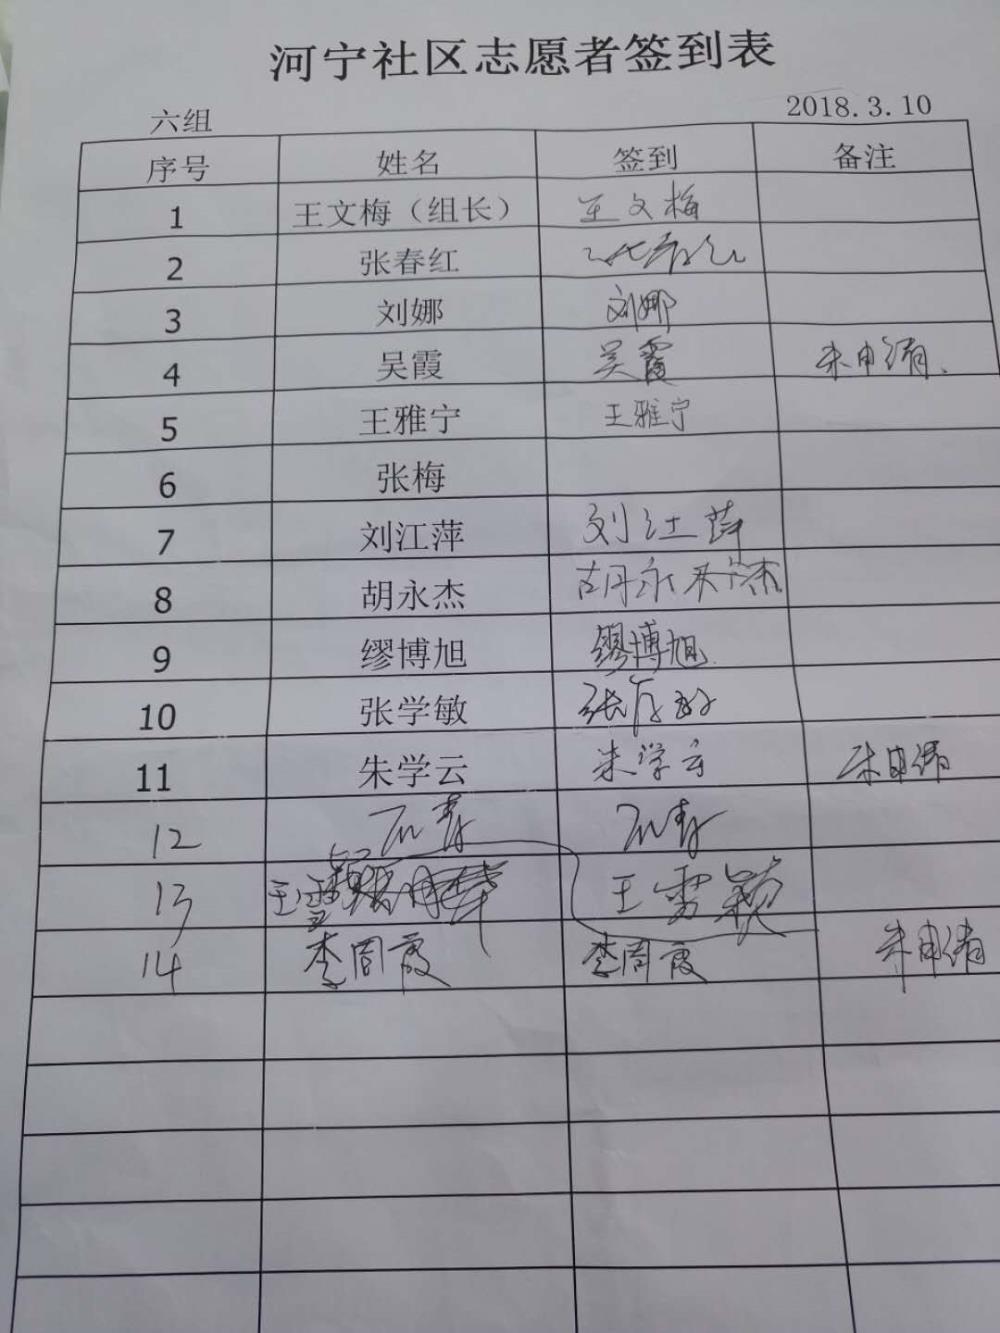 河宁社区志愿者签到表
六组 2018.3.10
序号 姓名 签到 备注
1 王文梅（组长） 王文梅
2 张春红
3 刘娜 刘娜
4 吴霞 吴霞 未申请.
5 王雅宁 王雅宁
6 张梅
7 刘江萍 刘江萍
8 胡永杰 胡永杰
9 缪博旭 缪博旭
10 张学敏
11 朱学云 朱学云 未申请
12 石青 石青
13 王雪颖
14 李周霞 李周霞 未申请